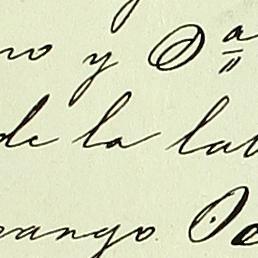 no y Dª
de la lab
rango De